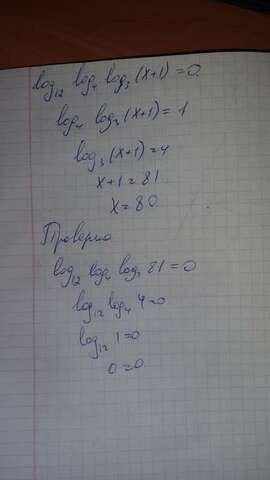 log₁₂ log₄ log₃ (x+1) = 0.
log₄ log₃ (x+1) = 1
log₃ (x+1) = 4
x+1 = 81
x = 80.
Проверка
log₁₂ log₄ log₃ 81 = 0
log₁₂ log₄ 4 = 0
log₁₂ 1 = 0
0 = 0.